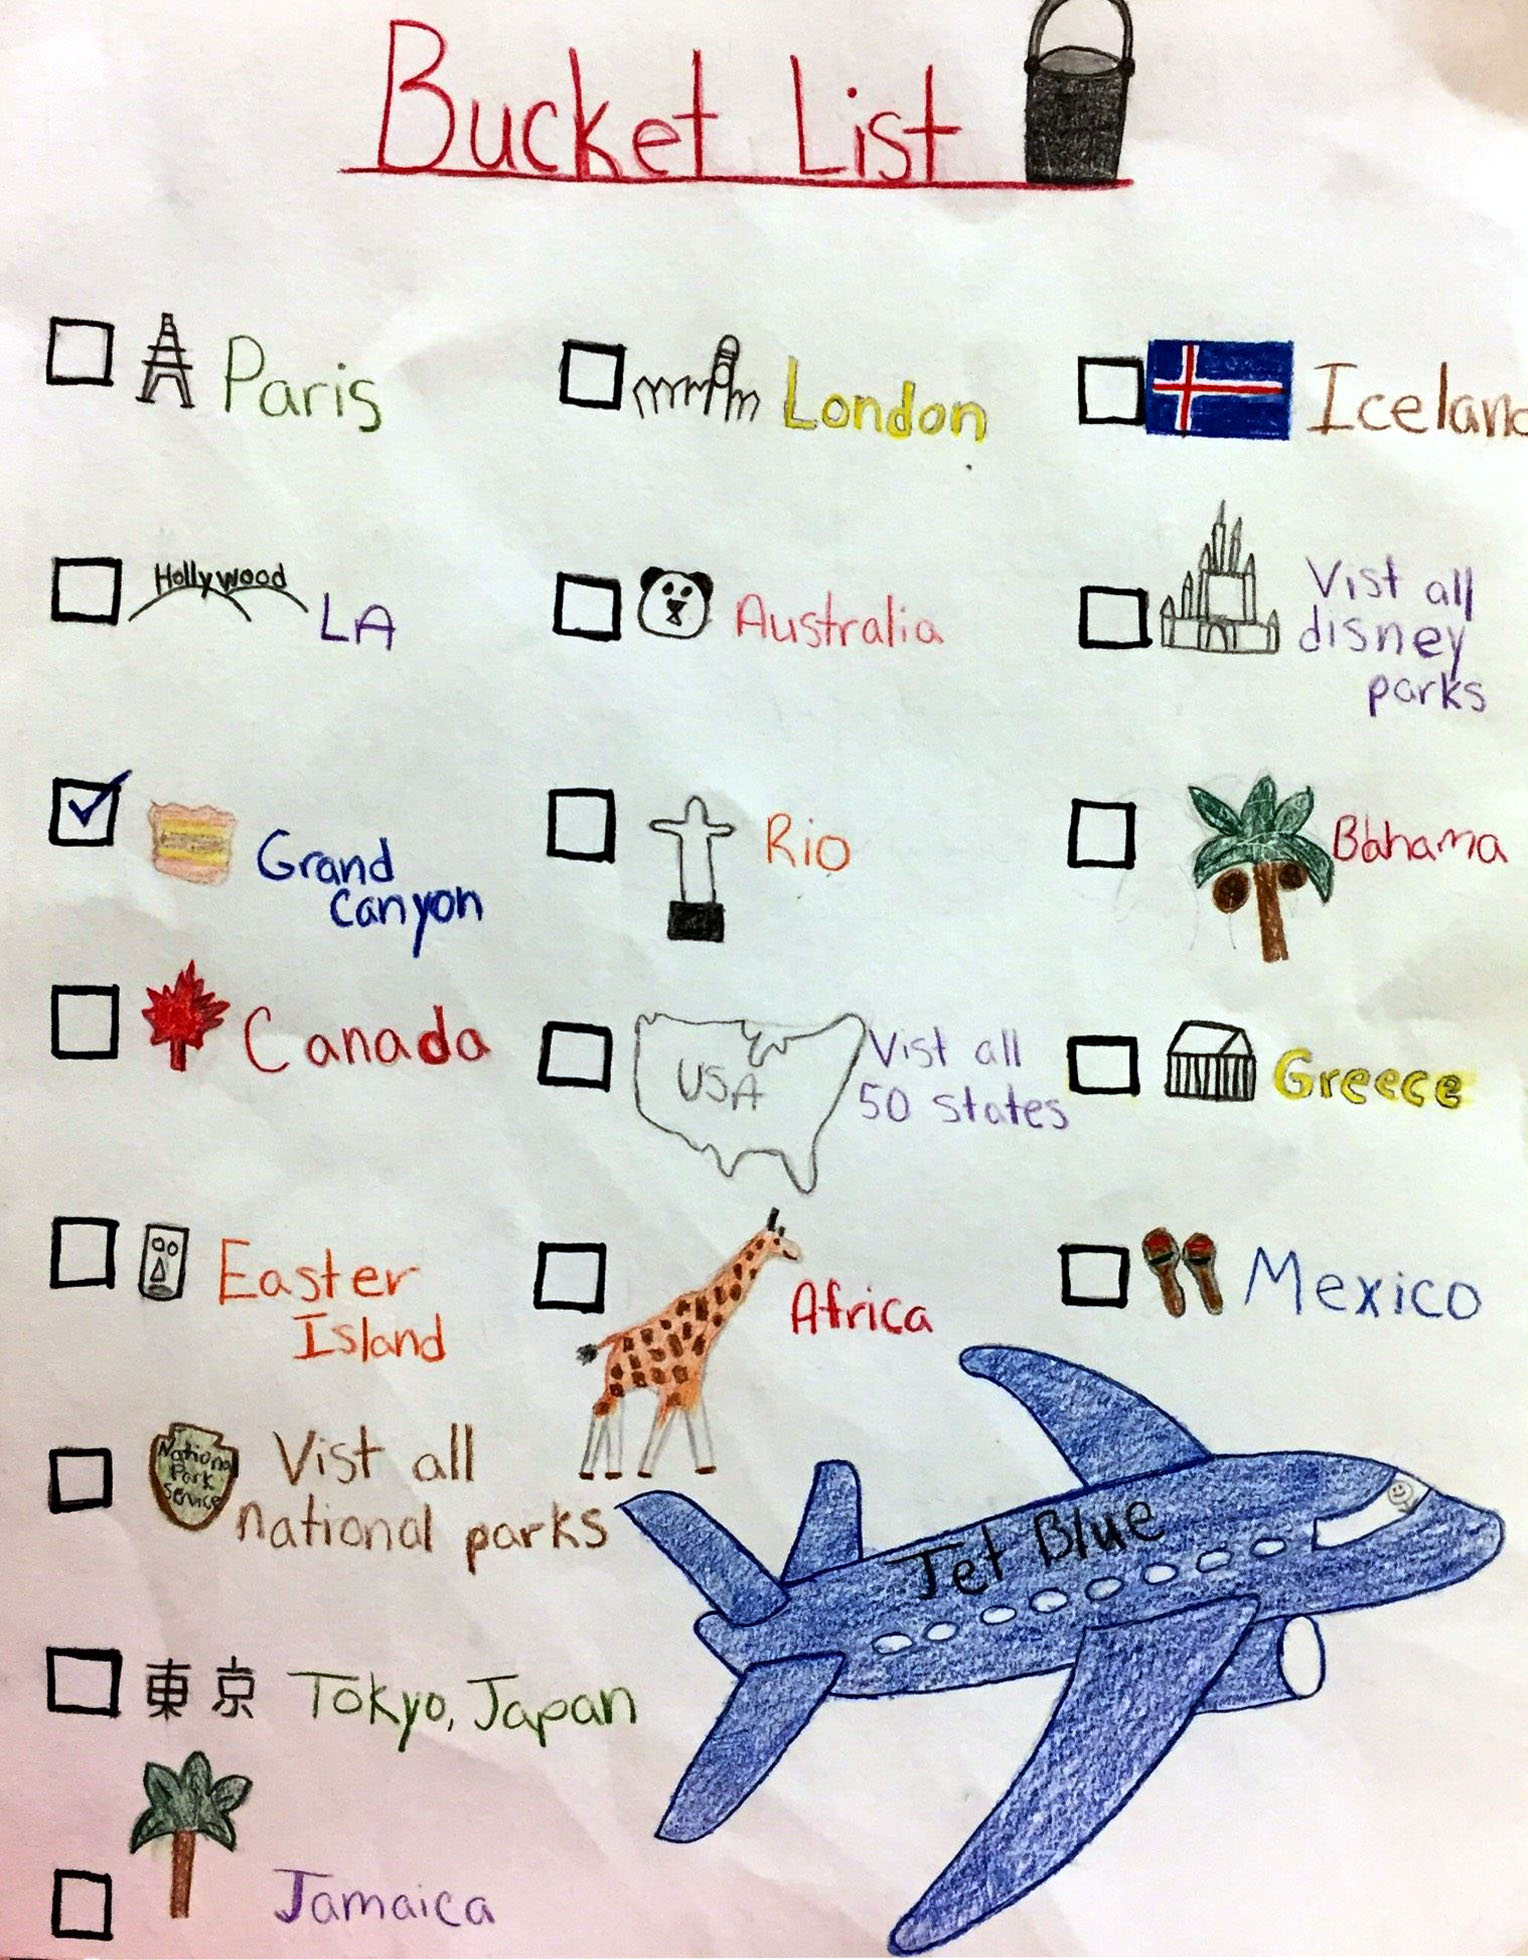 Bucket List
Paris
London
Iceland
Hollywood
LA
Australia
Vist all
disney
parks
Grand
Canyon
Rio
Bahama
Canada
USA
Vist all
50 states
Greece
Easter
Island
Africa
Mexico
National
Park
Service
Vist all
national parks
Jet Blue
東京
Tokyo, Japan
Jamaica